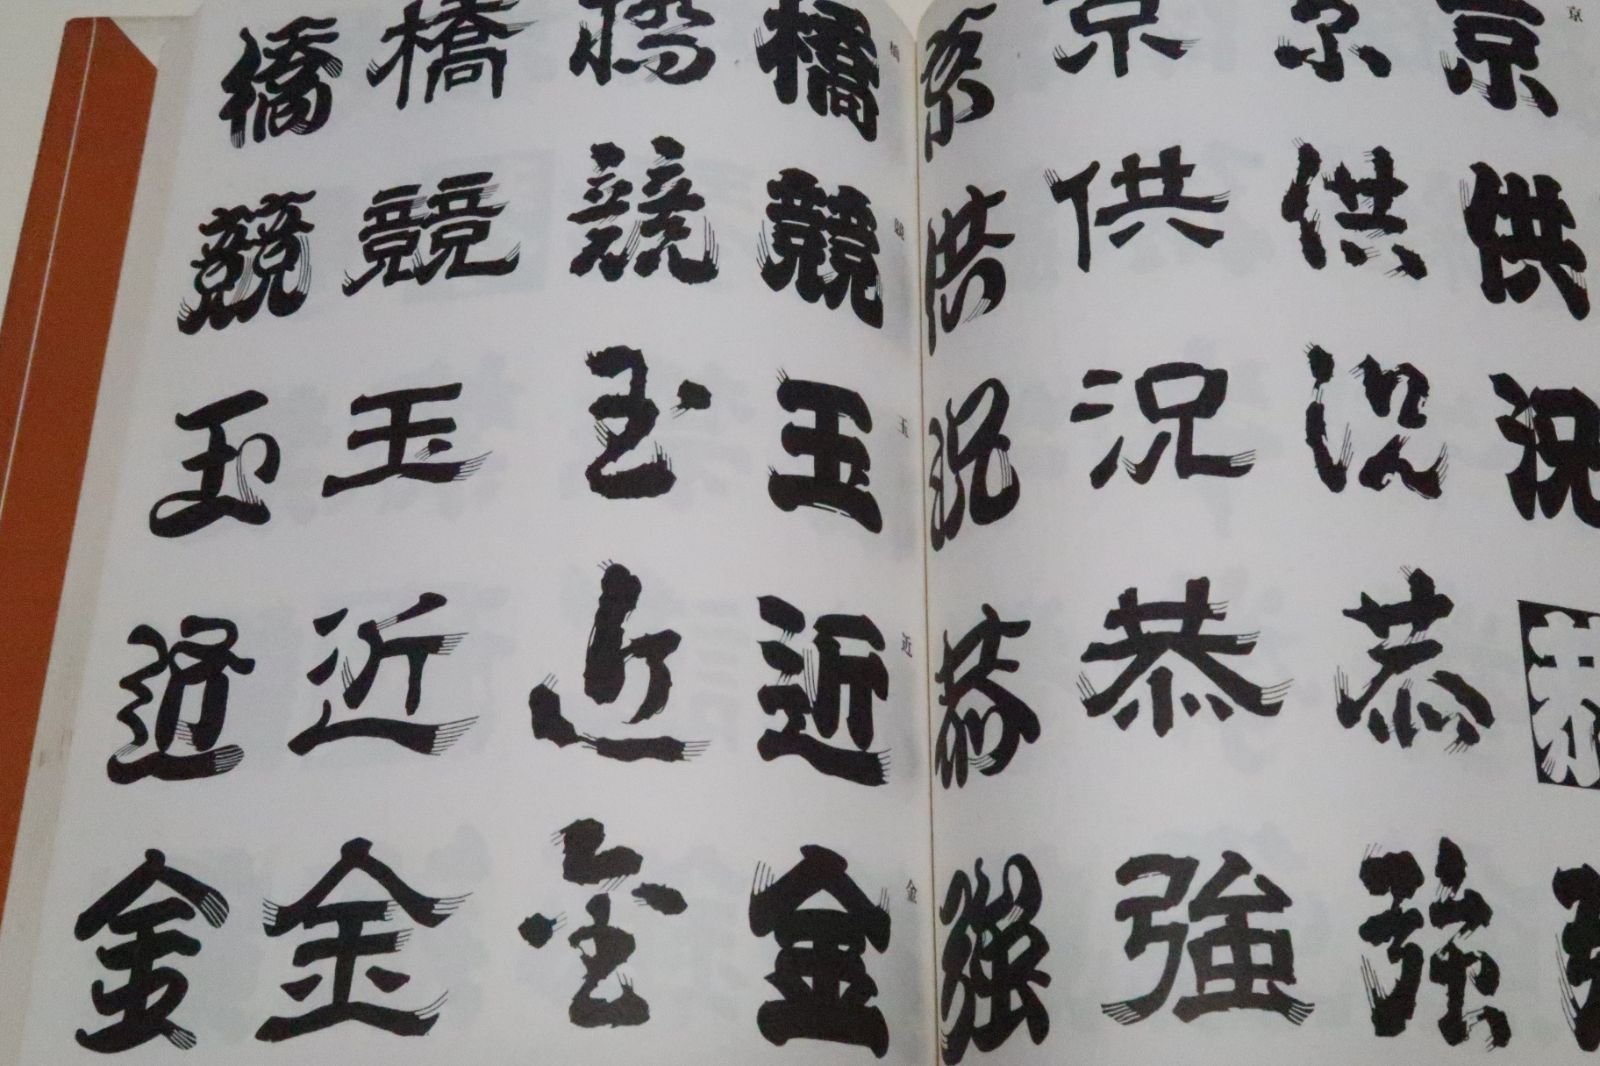 橋 橋 橋 橋 橋
競 競 競 競
玉 玉 玉 玉 玉
近 近 近 近 近
金 金 金 金 金
京 京 京 京 京
供 供 供 供
況 況 況 況
恭 恭 恭 恭
強 強 強 強